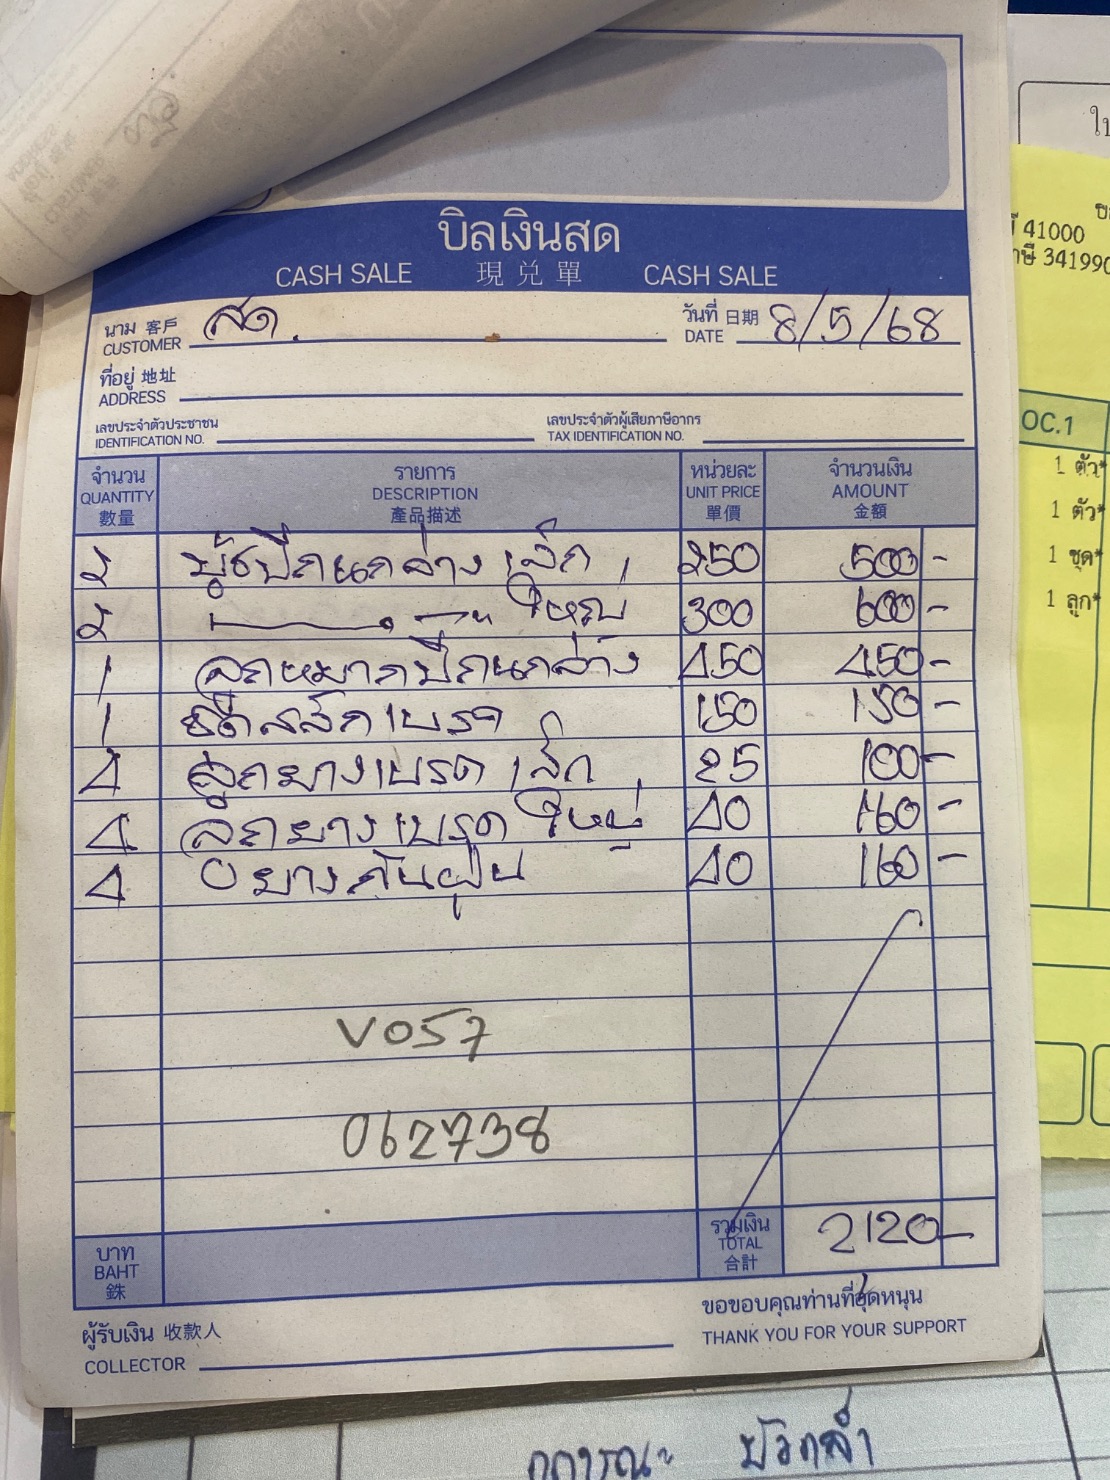 บิลเงินสด
CASH SALE 現 兑 單 CASH SALE
นาม 客戶 สด. วันที่ 日期 8/5/68
CUSTOMER DATE
ที่อยู่ 地址
ADDRESS
เลขประจำตัวประชาชน เลขประจำตัวผู้เสียภาษีอากร
IDENTIFICATION NO. TAX IDENTIFICATION NO.
จำนวน รายการ หน่วยละ จำนวนเงิน
QUANTITY DESCRIPTION UNIT PRICE AMOUNT
數量 產品描述 單價 金額
2 บู๊ชปีกนกล่าง เล็ก 250 500-
2 ใหญ่ 300 600-
1 ลูกหมากปีกนกล่าง 450 450-
1 เบรค 150 150-
4 ลูกยางเบรค เล็ก 25 100-
4 ลูกยางเบรค ใหญ่ 40 160-
4 ยางกันฝุ่น 40 160-
V057
062738
บาท รวมเงิน 2120-
BAHT TOTAL
銖 合計
ขอขอบคุณท่านที่อุดหนุน
ผู้รับเงิน 收款人 THANK YOU FOR YOUR SUPPORT
COLLECTOR
41000
341990
OC.1
1 ตัว*
1 ตัว*
1 ชุด*
1 ลูก*